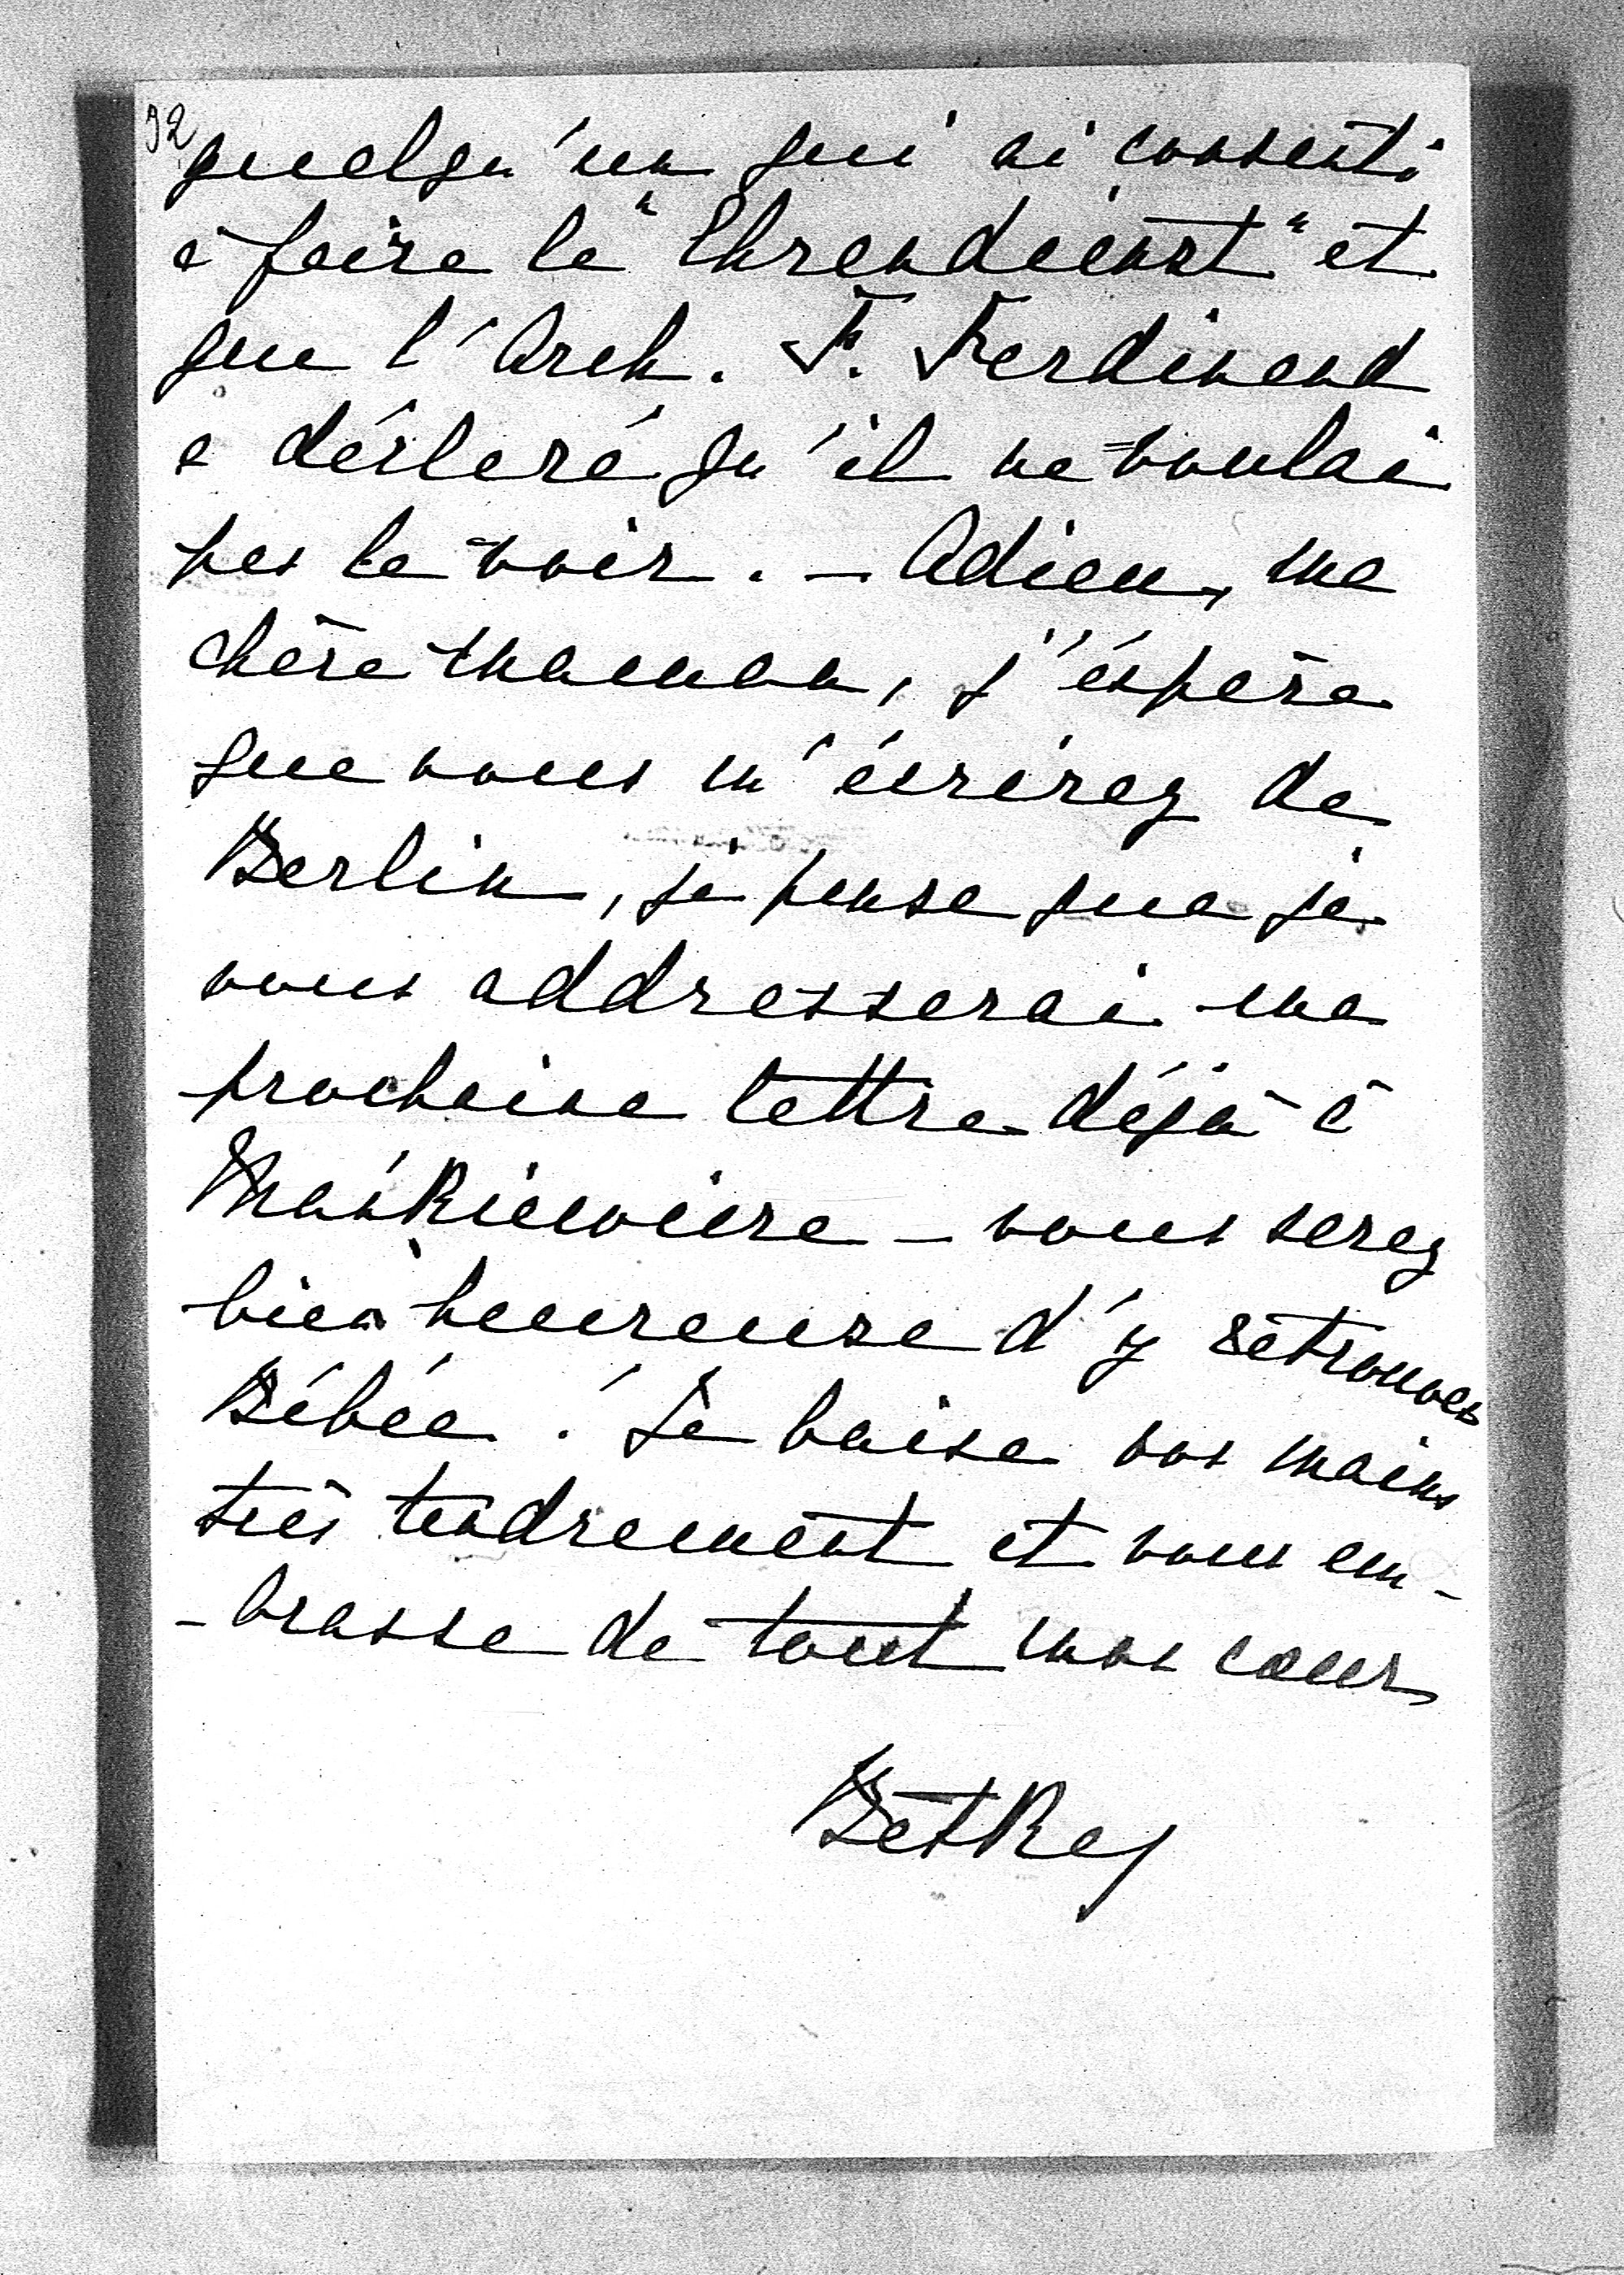 92
quelqu'un qui ai consenti
à faire le "Ehrendienst" et
que l'Arch. F. Ferdinand
a déclaré qu'il ne voulai
pas le voir. - Adieu, ma
chère maman, j'éspère
que vous m'écrirez de
Berlin, je pense que je
vous addresserai ma
prochaine lettre déjà à
Mańkiewicze - vous serez
bien heureuse d'y retrouver
Bébée. Je baise vos mains
très tendrement et vous em-
-brasse de tout mon cœur
Betka